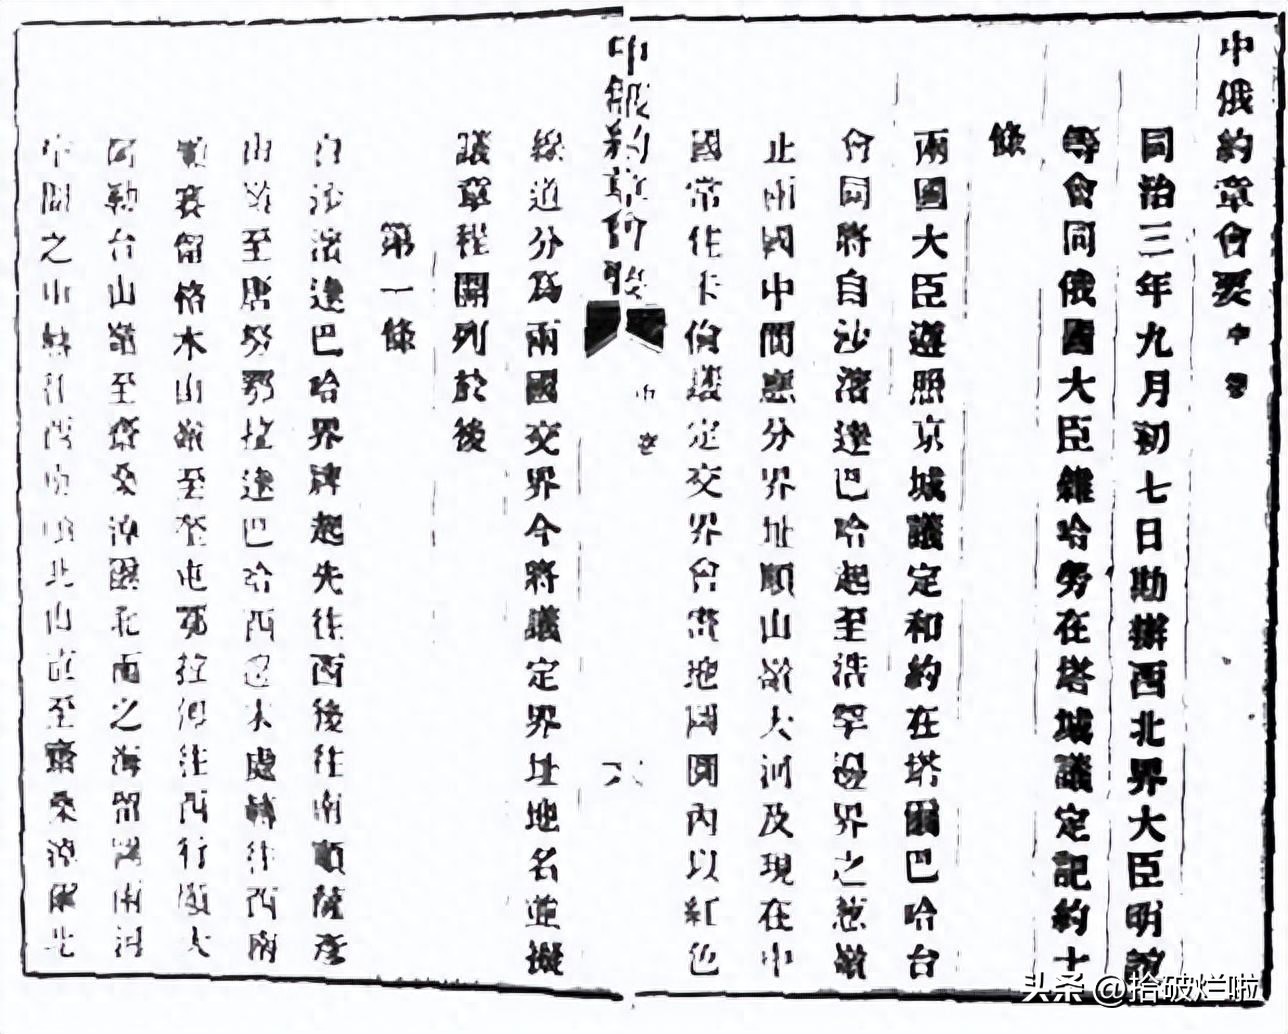 中俄約章會要 中卷
同治三年九月初七日勘辦西北界大臣明誼
等會同俄國大臣雜哈勞在塔城議定記約十
條
兩國大臣遵照京城議定和約在塔爾巴哈台
會同將自沙濱達巴哈起至浩罕邊界之蔥嶺
止兩國中間應分界址順山嶺大河及現在中
國常住卡倫議定交界會畫地圖圖內以紅色
中俄約章會要 中卷 六
線道分為兩國交界今將議定界址地名並擬
議章程開列於後
第一條
自沙濱達巴哈界牌起先往西後往南順薩彥
山嶺至唐努鄂拉達巴哈西邊末處轉往西南
順賽留格木山嶺至奎屯鄂拉即往西行順大
阿勒台山嶺至齋桑淖爾北面之海留圖兩河
中間之山轉往西南順此山直至齋桑淖爾北
头条 @拾破烂啦